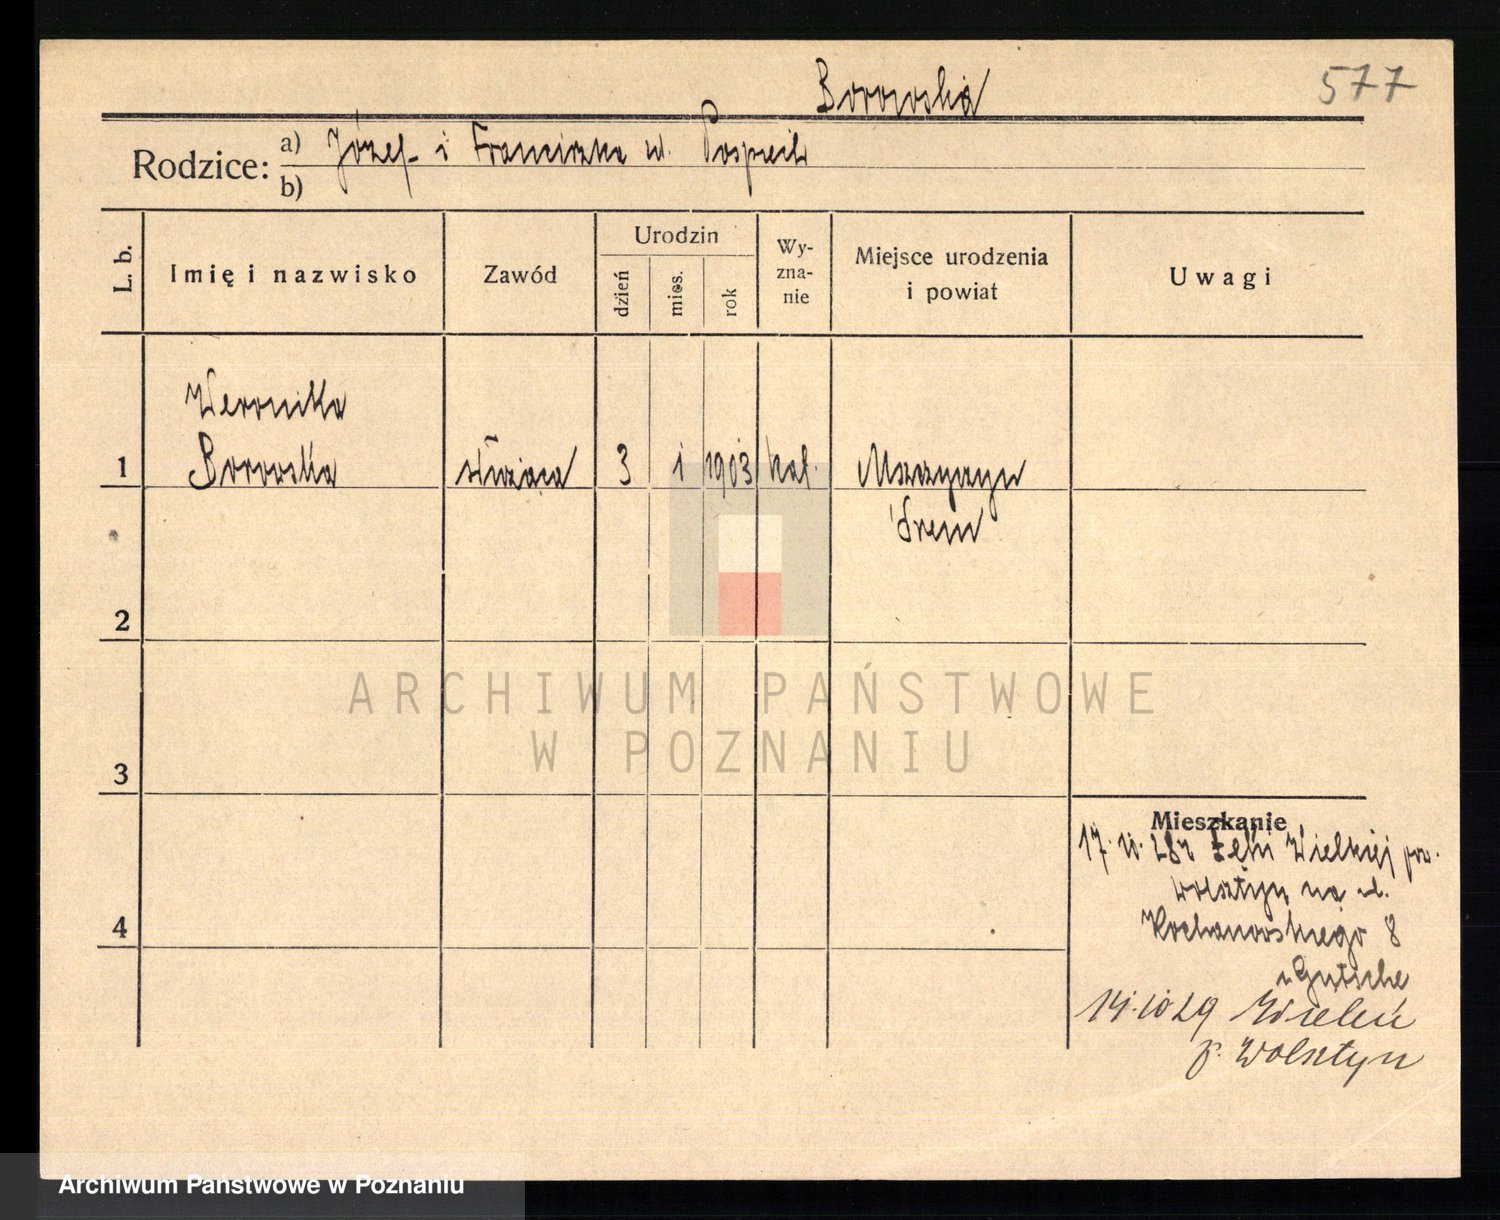 Borowska
577
Rodzice: a) Józef i Franciszka u. Pospiech
b)
L. b.
Imię i nazwisko
Zawód
Urodzin
dzień
mies.
rok
Wy-
zna-
nie
Miejsce urodzenia
i powiat
Uwagi
Weronika
1 Borowska służąca 3 1 1903 kat. Mszczyczyn
Śrem
2
3
4
ARCHIWUM PAŃSTWOWE
W POZNANIU
Mieszkanie
17. 28 z Wielkiej pow.
Wolsztyn na ul.
Kochanowskiego 8
Gutsche
14.10 29 Wieleń
p. Wolsztyn
Archiwum Państwowe w Poznaniu